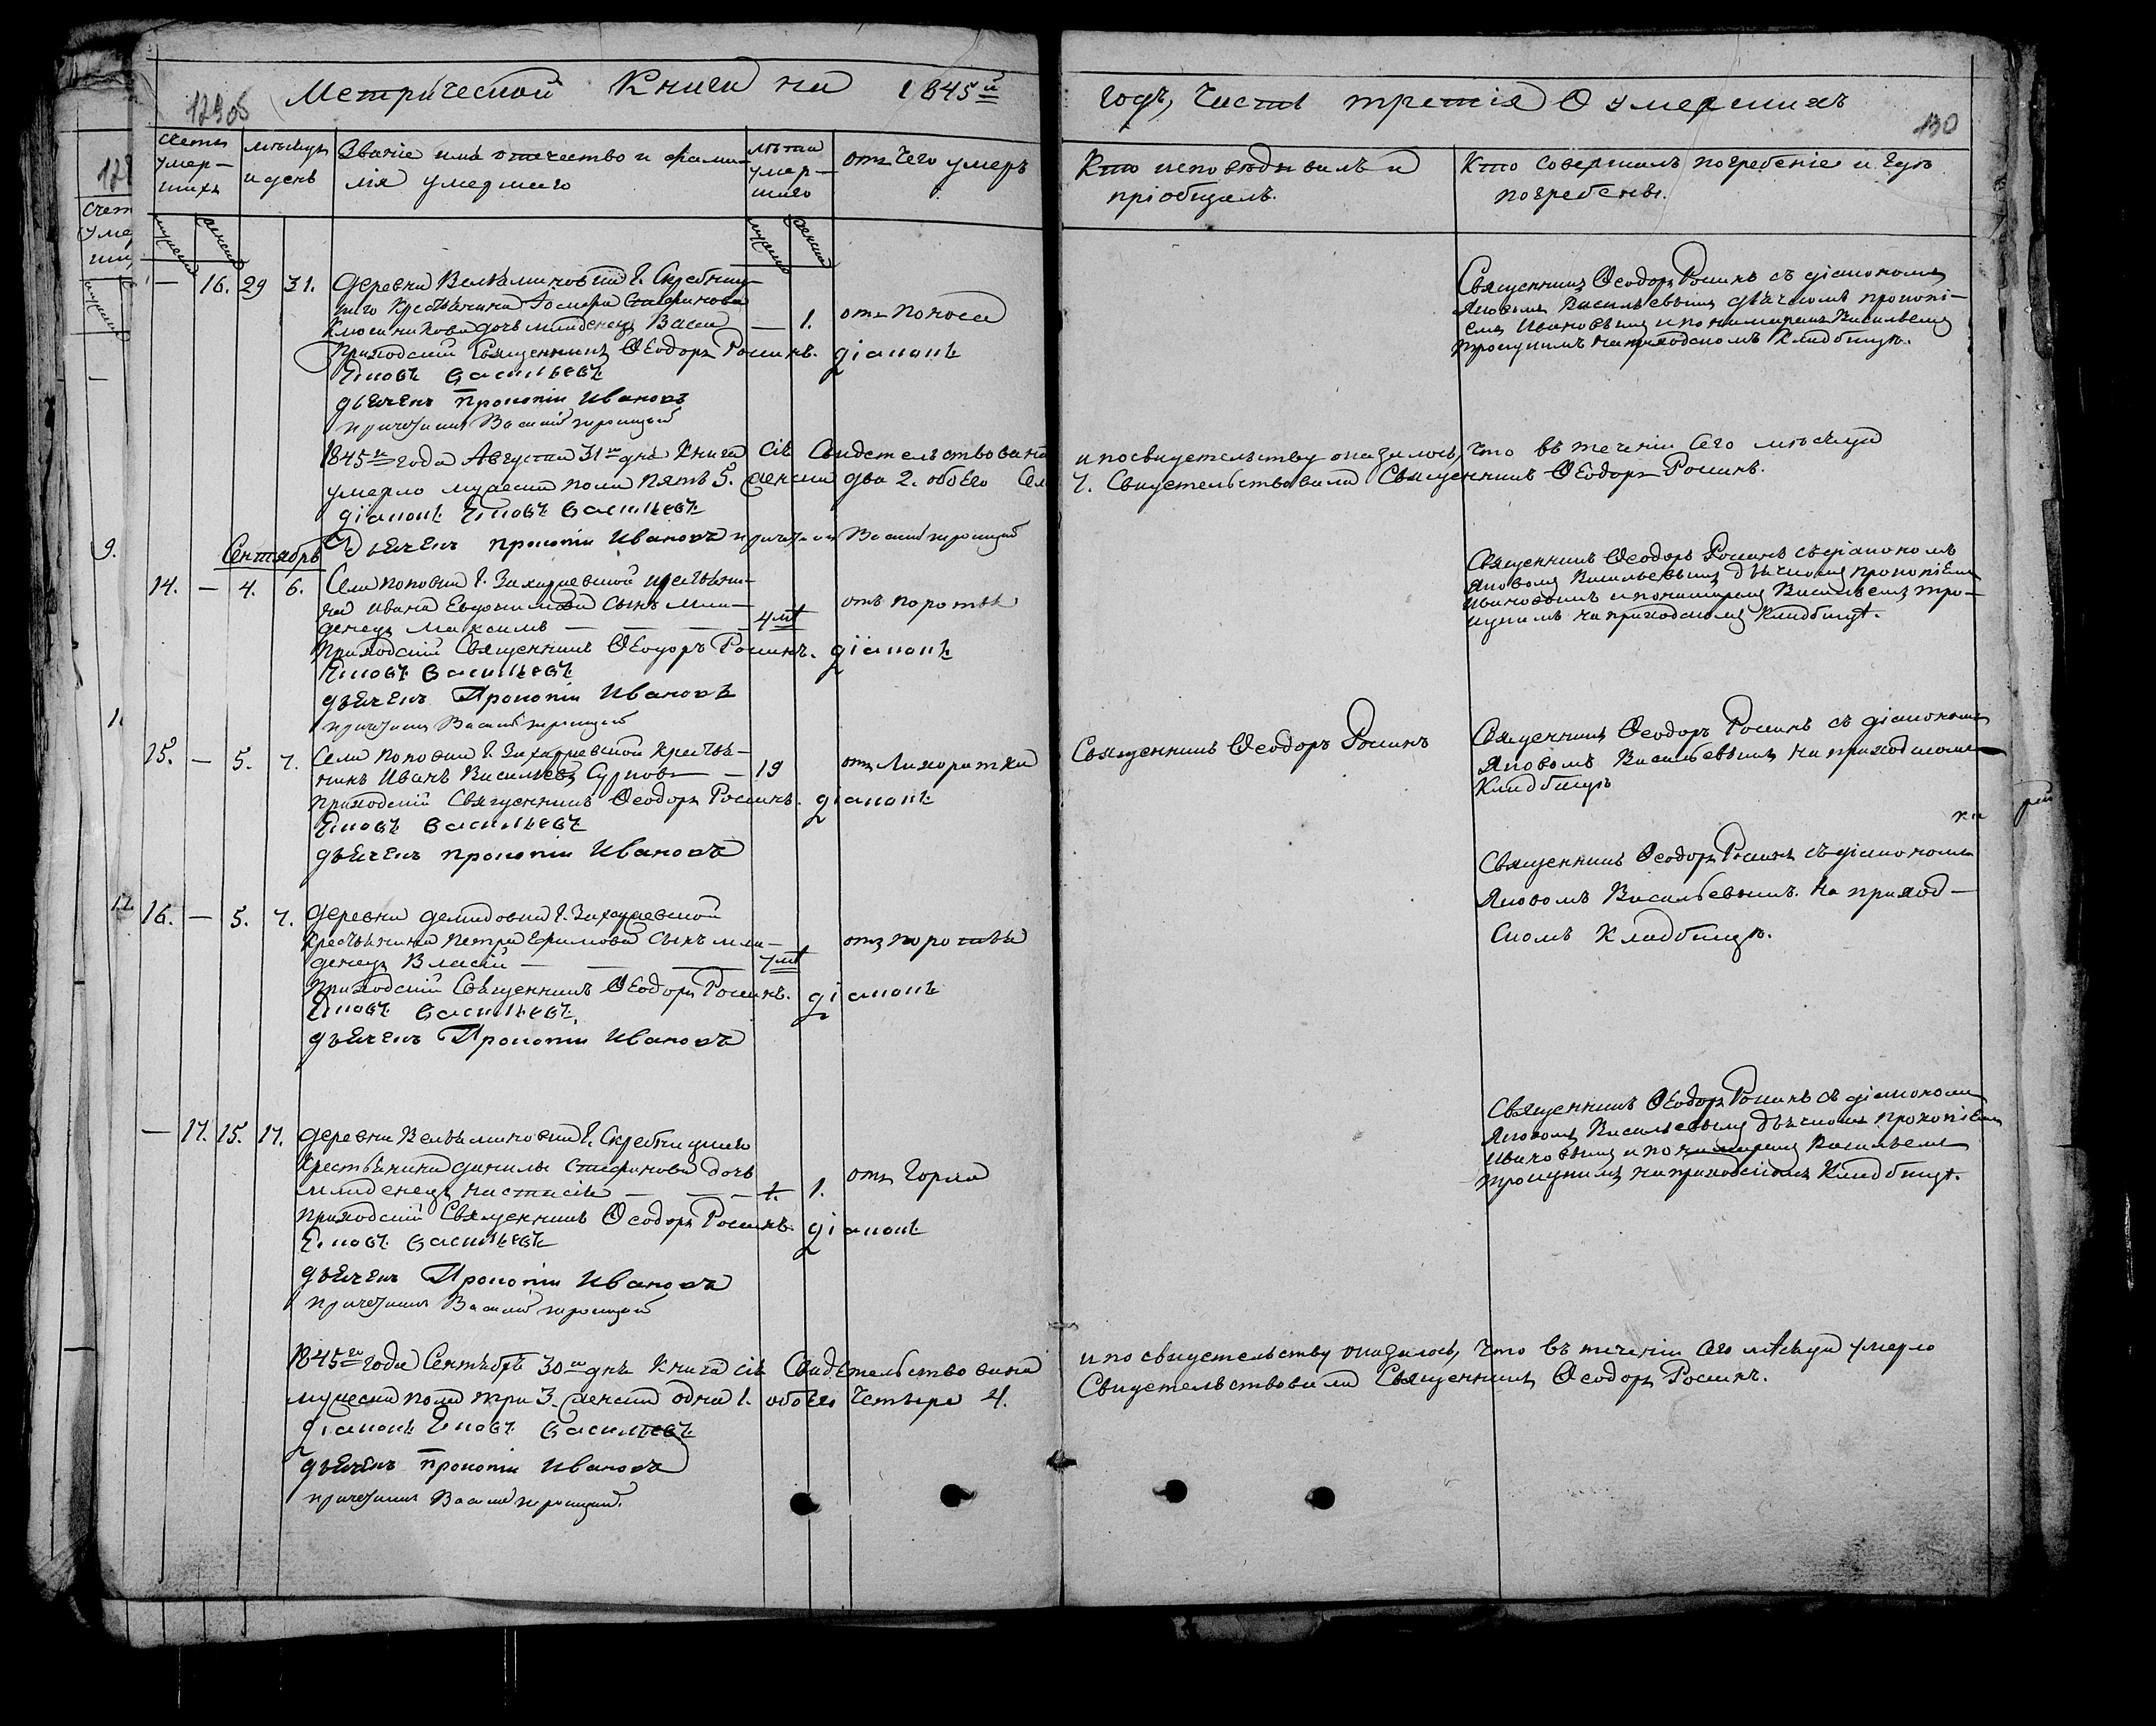 129об
Метрической Книги на 1845й
годъ, Часть третія О умершихъ
130
Счетъ умер-шихъ
мѣсяцъ и день
Званіе имя отечество и фами-
лія умершаго
лѣта умер-шаго
отъ чего умеръ
Кто исповѣдывалъ и
пріобщалъ.
Кто совершалъ погребеніе и гдѣ
погребены.
мужеска женска
мужеска женска
— 16. 29 31. деревни Вельяминовой Г. Скребиц-
каго Крестьянина Стефанова
дочь младенецъ — 1. отъ поноса
Приходскій Священникъ Ѳеодоръ Рошинъ. діаконъ
Яковъ Васильевъ
дьячекъ Прокопій Ивановъ
причетникъ Василій Троицкій
Священникъ Ѳеодоръ Рошинъ съ діакономъ
Яковомъ Васильевымъ дьячкомъ прокопі-
емъ Ивановымъ и пономаремъ Васильемъ
троицкимъ на приходскомъ Кладбищѣ.
1845го года Августа 31го дня Книга сія Свидетельствована
и по свидетельству оказалось, что въ теченіи Сего мѣсяца
умерло мужеска пола пять 5. женска два 2. обоего Се
7. Свидетельствовали Священникъ Ѳеодоръ Рошинъ.
діаконъ Яковъ Васильевъ
Дьячекъ прокопій Ивановъ причетникъ Василій троицкій
Сентябрь
14. — 4. 6. Села поповки Г. Захарьевской крестьяни-
на Ивана Евдокимова сынъ мла-
денецъ Максимъ — — — 4 мѣ отъ поротья
Приходскій Священникъ Ѳеодоръ Рошинъ. діаконъ
Яковъ Васильевъ
дьячекъ Прокопій Ивановъ
причетникъ Василій троицкій
Священникъ Ѳеодоръ Рошинъ съ діакономъ
Яковомъ Васильевымъ дьячкомъ прокопіемъ
Ивановымъ и пономаремъ Васильемъ тро-
ицкимъ на приходскомъ Кладбищѣ.
15. — 5. 7. Села поповки Г. Захарьевской крестья-
нинъ Иванъ Васильевъ — 19 отъ Лихорадки
приходскій Священникъ Ѳеодоръ Рошинъ. діаконъ
Яковъ Васильевъ
дьячекъ прокопій Ивановъ
Священникъ Ѳеодоръ Рошинъ
Священникъ Ѳеодоръ Рошинъ съ діакономъ
Яковомъ Васильевымъ на приходскомъ
Кладбищѣ
16. — 5. 7. деревни демидовки Г. Захарьевской
крестьянина петра Ефимова сынъ мла-
денецъ Власій — — — 7 мѣ отъ поротья
приходскій Священникъ Ѳеодоръ Рошинъ. діаконъ
Яковъ Васильевъ
дьячекъ Прокопій Ивановъ
Священникъ Ѳеодоръ Рошинъ съ діакономъ
Яковомъ Васильевымъ. На приход-
скомъ Кладбищѣ.
— 17. 15. 17. деревни Вельяминовой Г. Скребицкаго
Крестьянина данилы Стефанова дочь
младенецъ настасія — — — 1. 1. отъ Горла
приходскій Священникъ Ѳеодоръ Рошинъ. діаконъ
Яковъ Васильевъ
дьячекъ Прокопій Ивановъ
причетникъ Василій троицкій
Священникъ Ѳеодоръ Рошинъ съ діакономъ
Яковомъ Васильевымъ дьячкомъ прокопіемъ
Ивановымъ и пономаремъ Васильемъ
троицкимъ на приходскомъ Кладбищѣ.
1845го года Сентября 30го дня Книга сія Свидетельствована
и по свидетельству оказалось, что въ теченіи сего мѣсяца умерло
мужеска пола три 3. женска одна 1. обоего Четыре 4.
Свидетельствовали Священникъ Ѳеодоръ Рошинъ.
діаконъ Яковъ Васильевъ
дьячекъ прокопій Ивановъ
причетникъ Василій троицкій.